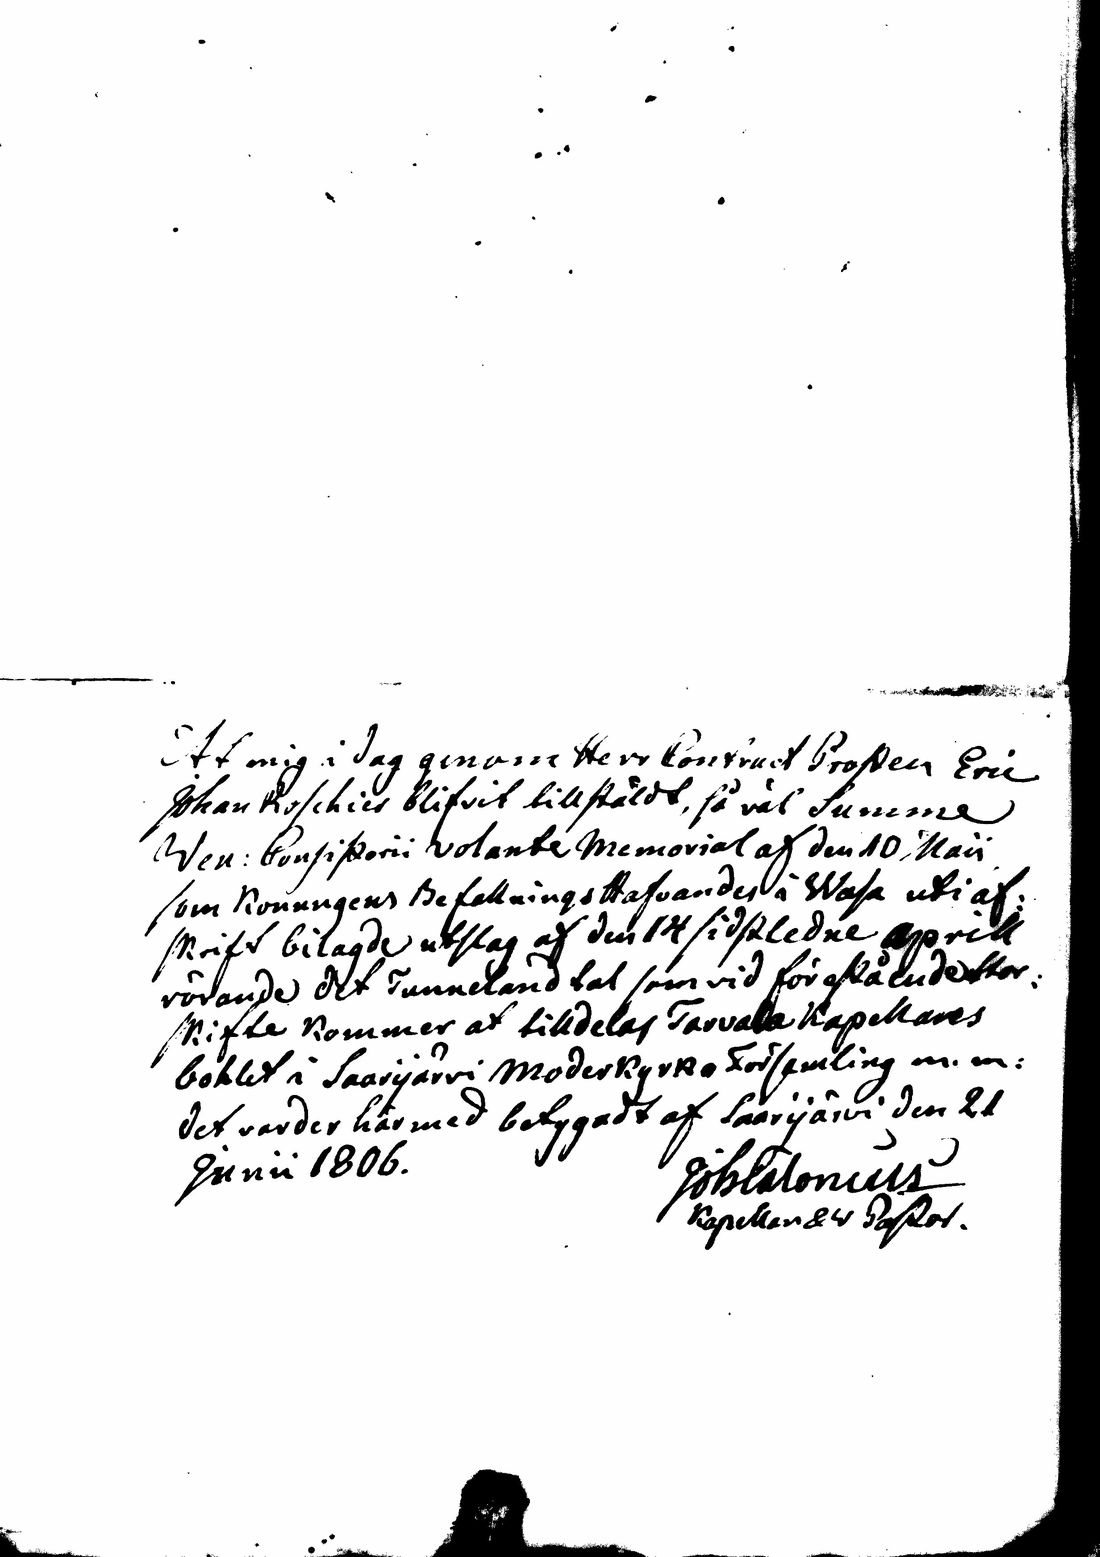 At mig i dag genom Herr Contract Prosten Eric
Johan Roschier blifvit tillstäldt, så väl Summe
Ven: Consistorii volante Memorial af den 10 Maii
som Konungens Befallnings Hafvandes i Wasa uti af:
skrift bilagde utslag af den 14 sidstledne april
rörande det Tunneland tal som vid föreståendestor:
skifte kommer at tilldelas Tarvala Kapellares
bohlet i Saarijärvi Moderkyrko Församling m. m:
det varder härmed betygadt af Saarijärvi den 21
Junii 1806.
Joh Calonius
Kapellan & v Pastor.